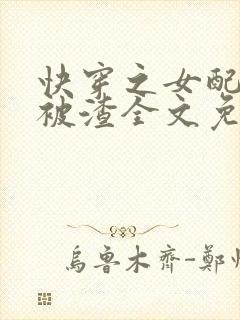 快穿之女配
被渣全文免
烏魯木齊-鄭州